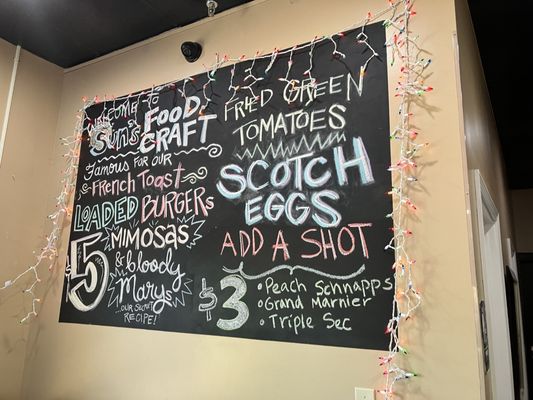 WELCOME TO
Sun's FOOD
CRAFT
Famous FOR OUR
French Toast
LOADED BURGERS
$5 MIMOSAS
& bloody
Marys
...OUR SECRET
RECIPE!
FR4ED GREEN
TOMATOES
SCOTCH
EGGS
ADD A SHOT
$3
• Peach Schnapps
• Grand Marnier
• Triple Sec